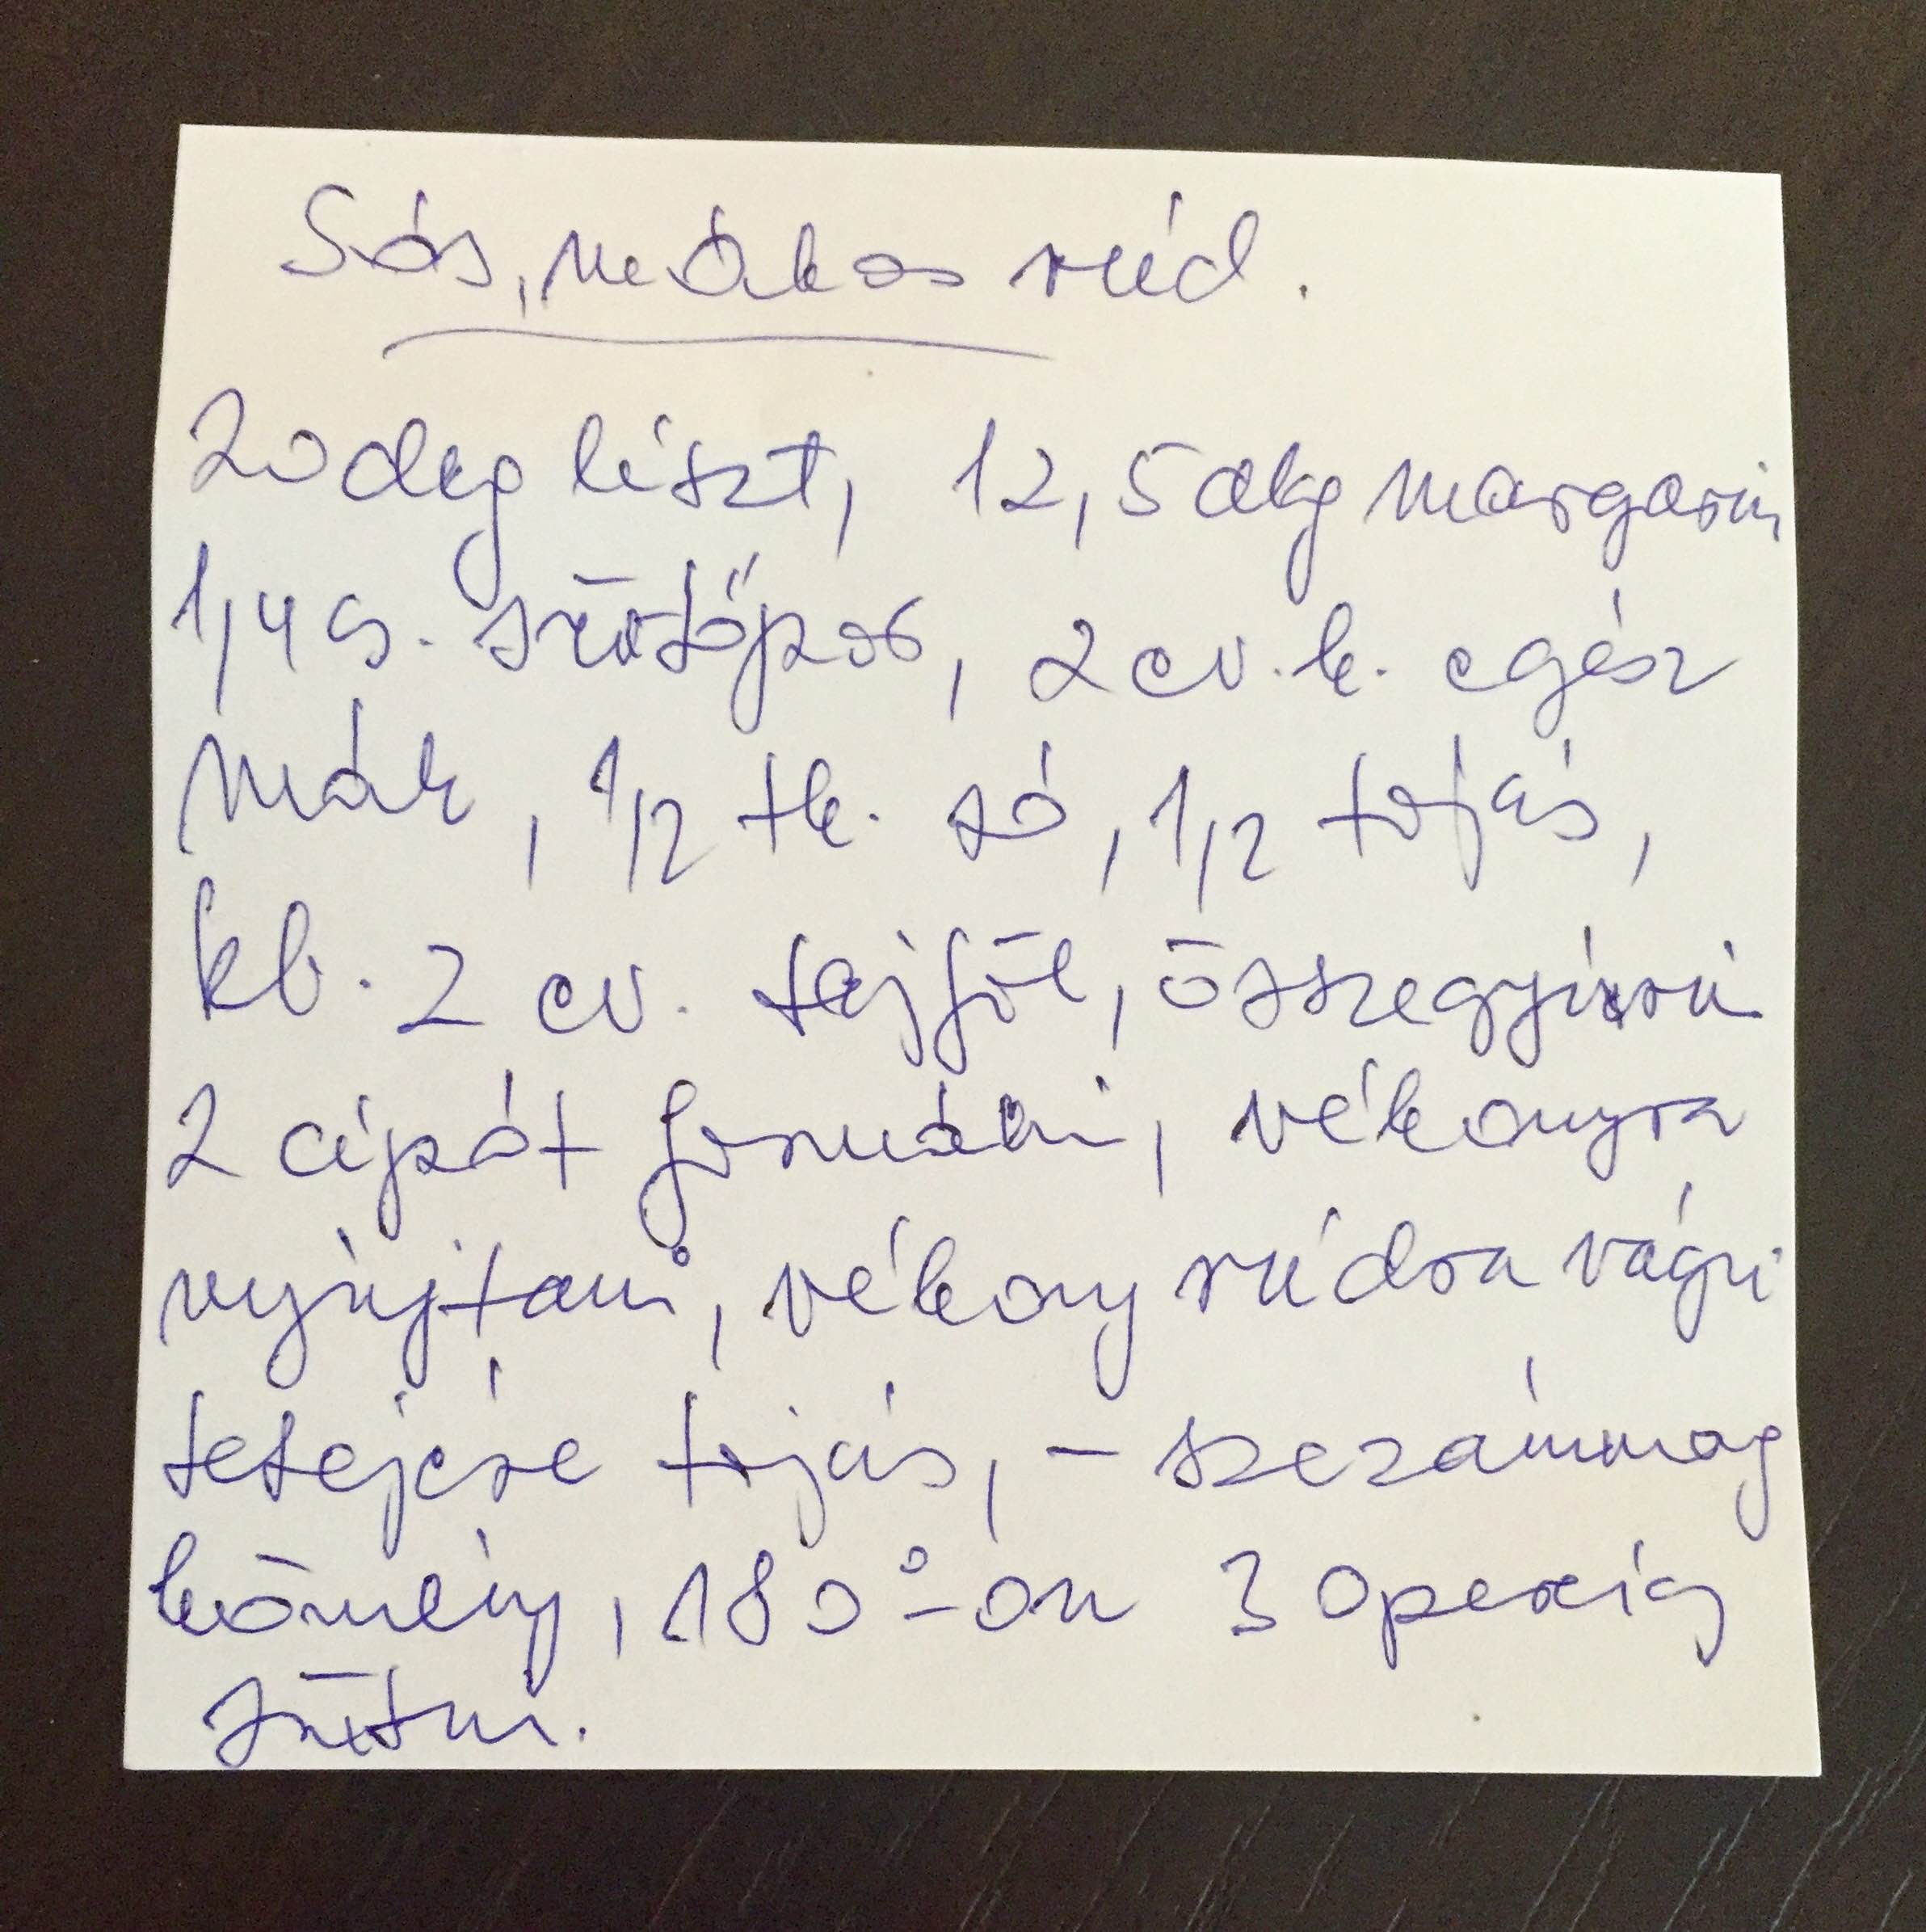 Sós, mákos rúd.
20 dkg liszt, 12,5 dkg margarin
1/4 cs. sütőpor, 2 ev. k. egész
mák, 1/2 tk. só, 1/2 tojás,
kb. 2 ev. tejföl, összegyúrni
2 cipót formálni, vékonyra
nyújtani, vékony rúdra vágni
tetejére tojás, - szezámmag
kömény, 180°-on 30 percig
sütni.